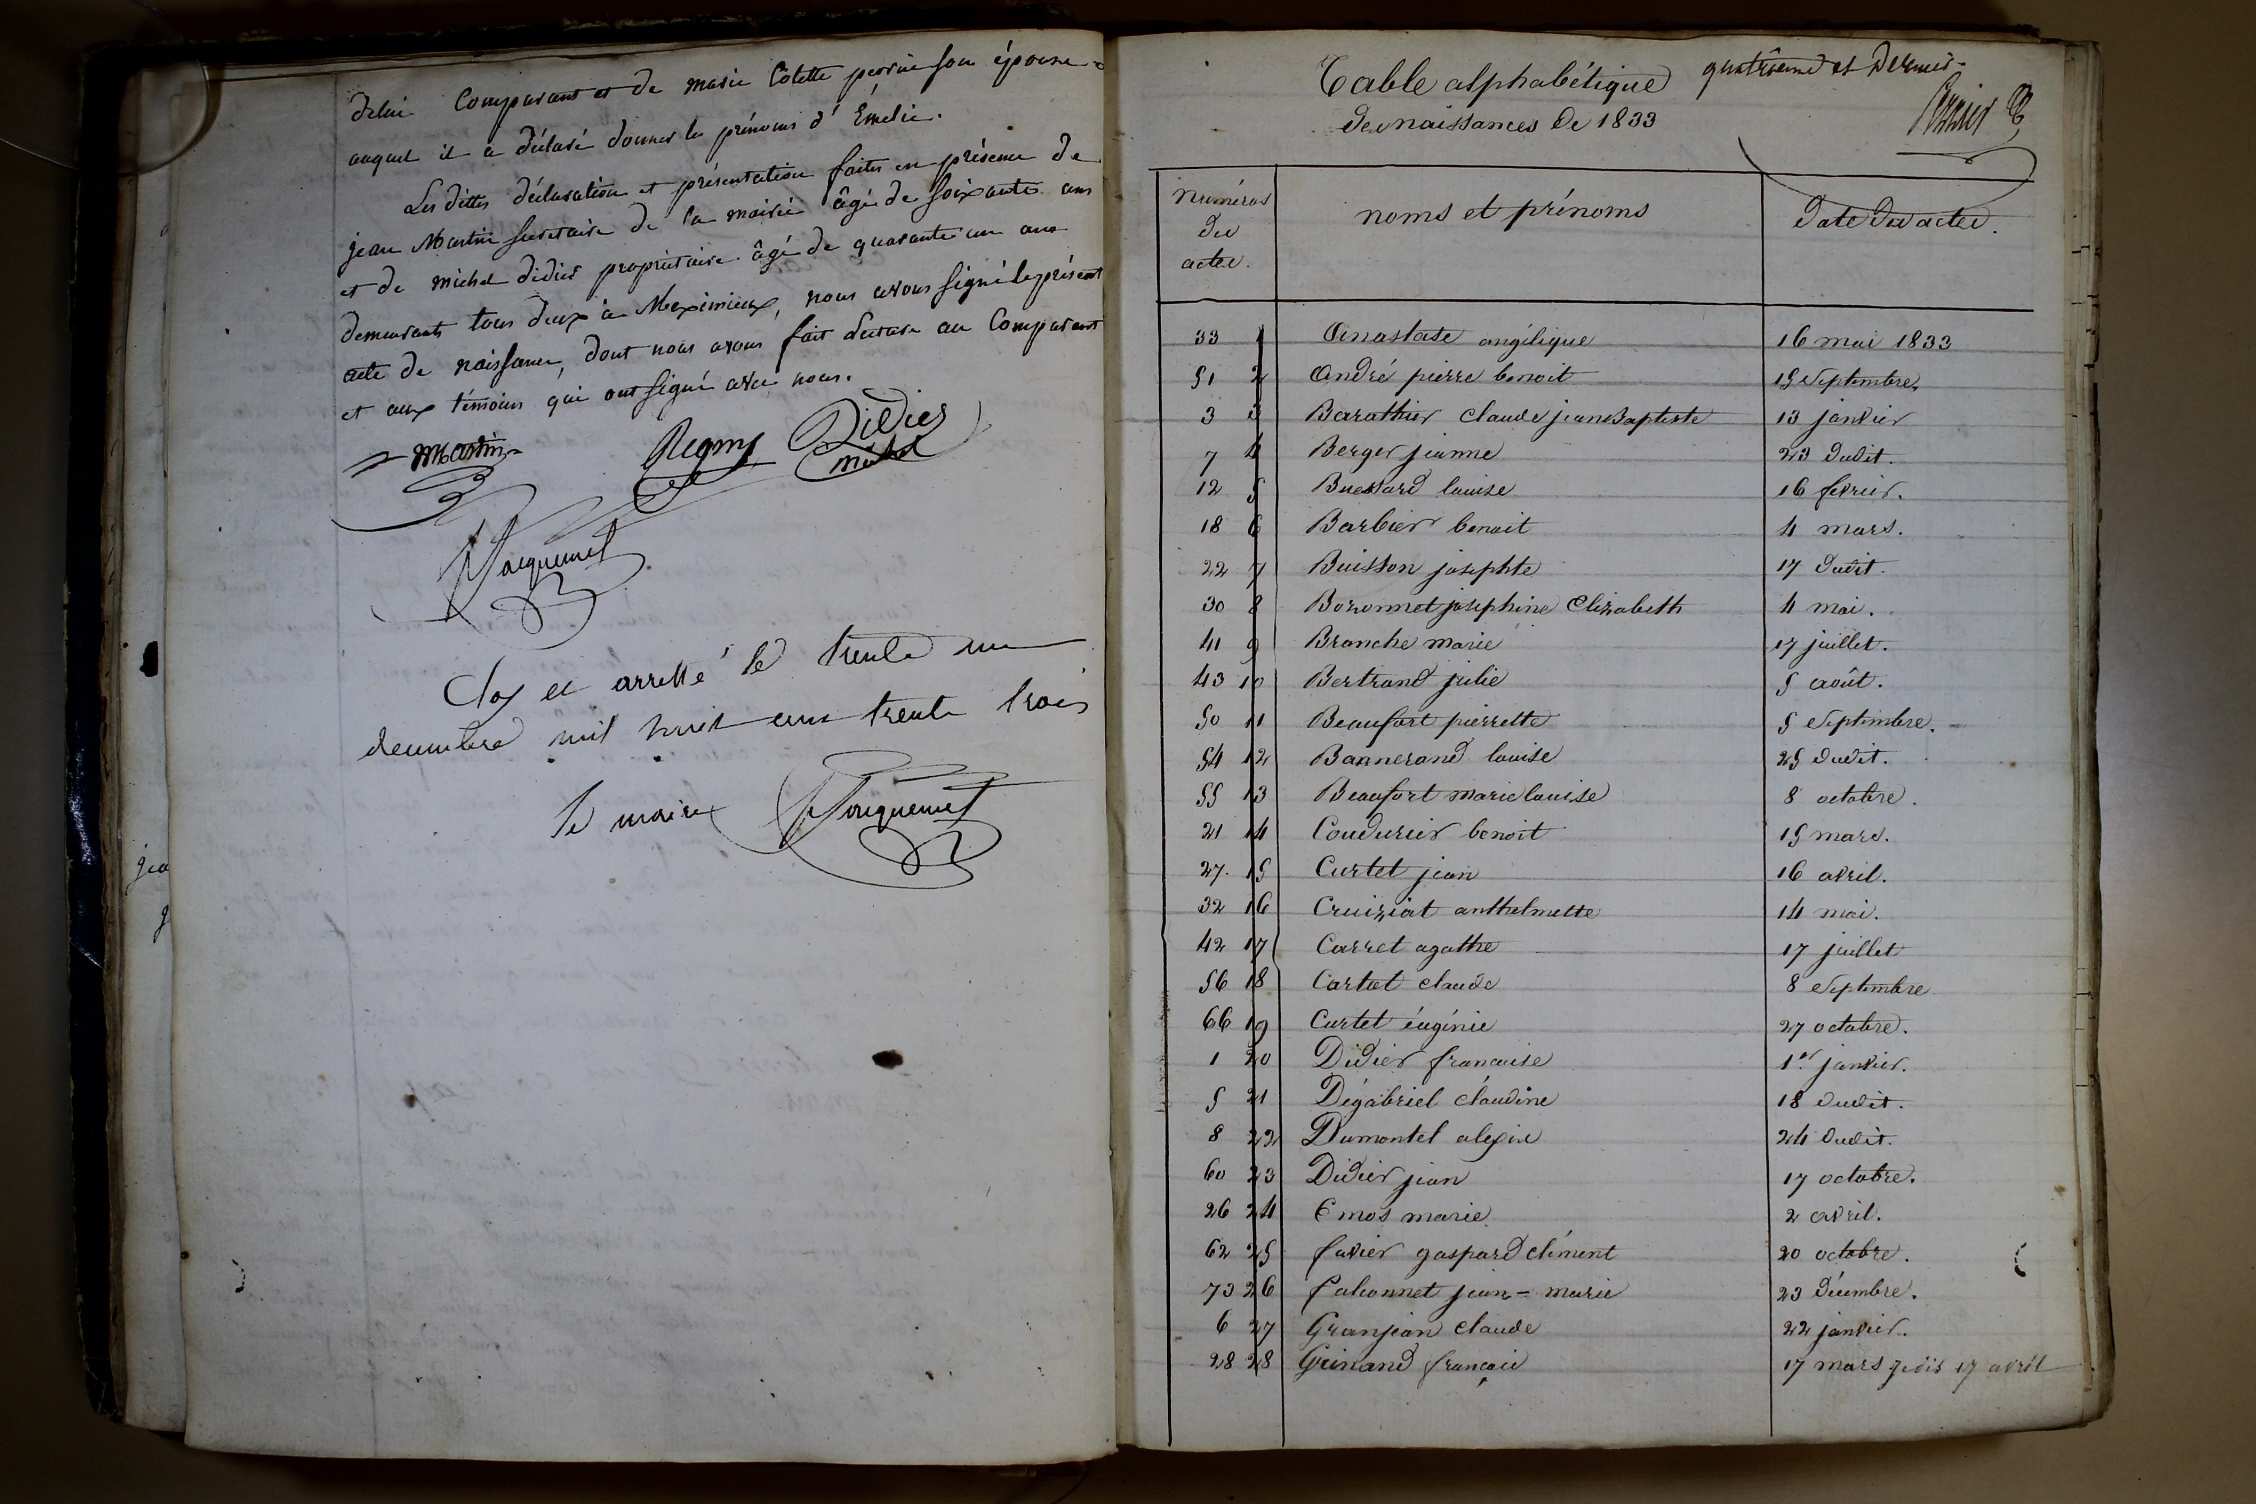 delui Comparant et de marie Colette perrin son épouse
auquel il a déclaré donner le prénoms d'Emelie.
Les dittes déclaration et présentation faites en présence de
jean Martin secretaire de la mairie âgé de soixante ans
et de michel didier propriétaire âgé de quarante un ans
demeurants tous deux à Meximieux, nous avons signé le présent
acte de naissance, dont nous avons fait lecture au Comparant
et aux témoins qui ont signé avec nous.
Martin Regny Didier
michel
Jacquemet
Clos et arretté le trente un
decembre mil huit cens trente trois
le maire Jacquemet
quatrième et dernier
Table alphabétique
des naissances de 1833
numéros
des
actes.
noms et prénoms
Date des actes.
33 1 Anastase angélique 16 mai 1833
51 2 André pierre benoit 15 septembre
3 3 Barathier Claude jean Baptiste 13 janvier
7 4 Berger jeanne 23 dudit.
12 5 Buessard louise 16 fevrier.
18 6 Barbier benoit 4 mars.
22 7 Buisson josephte 17 dudit.
30 8 Bozonnet josephine Elizabeth 4 mai.
41 9 Branche marie 17 juillet.
43 10 Bertrand julie 5 août.
50 11 Beaufort pierrette 5 septembre.
54 12 Bannerand louise 25 dudit.
55 13 Beaufort marie louise 8 octobre.
21 14 Coudurier benoit 15 mars.
27. 15 Curtet jean 16 avril.
32 16 Cruiziat anthelmette 14 mai.
42 17 Carret agathe 17 juillet
56 18 Curtet claude 8 septembre
66 19 Curtet éugénie 27 octobre.
1 20 Didier francoise 1er janvier.
5 21 Dégabriel Claudine 18 dudit.
8 22 Dumontel alexis 24 dudit.
60 23 Didier jean 17 octobre.
26 24 Emos marie 2 avril.
62 25 favier gaspard clément 20 octobre.
73 26 falconnet jean = marie 23 décembre.
6 27 Granjean claude 22 janvier.
28 28 Guinand françois 17 mars je dis 17 avril